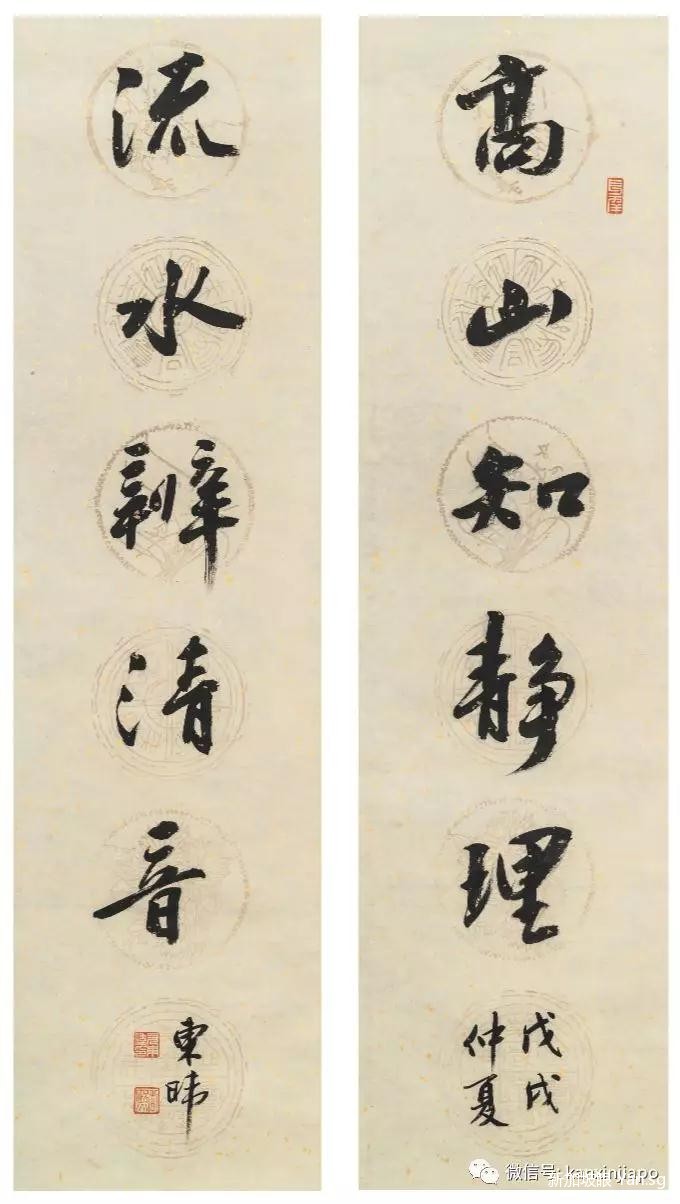 高山知静理
戊戌
仲夏
流水辨清音
東暐
微信号: kanxinjiapo
新加坡眼 yan.sg